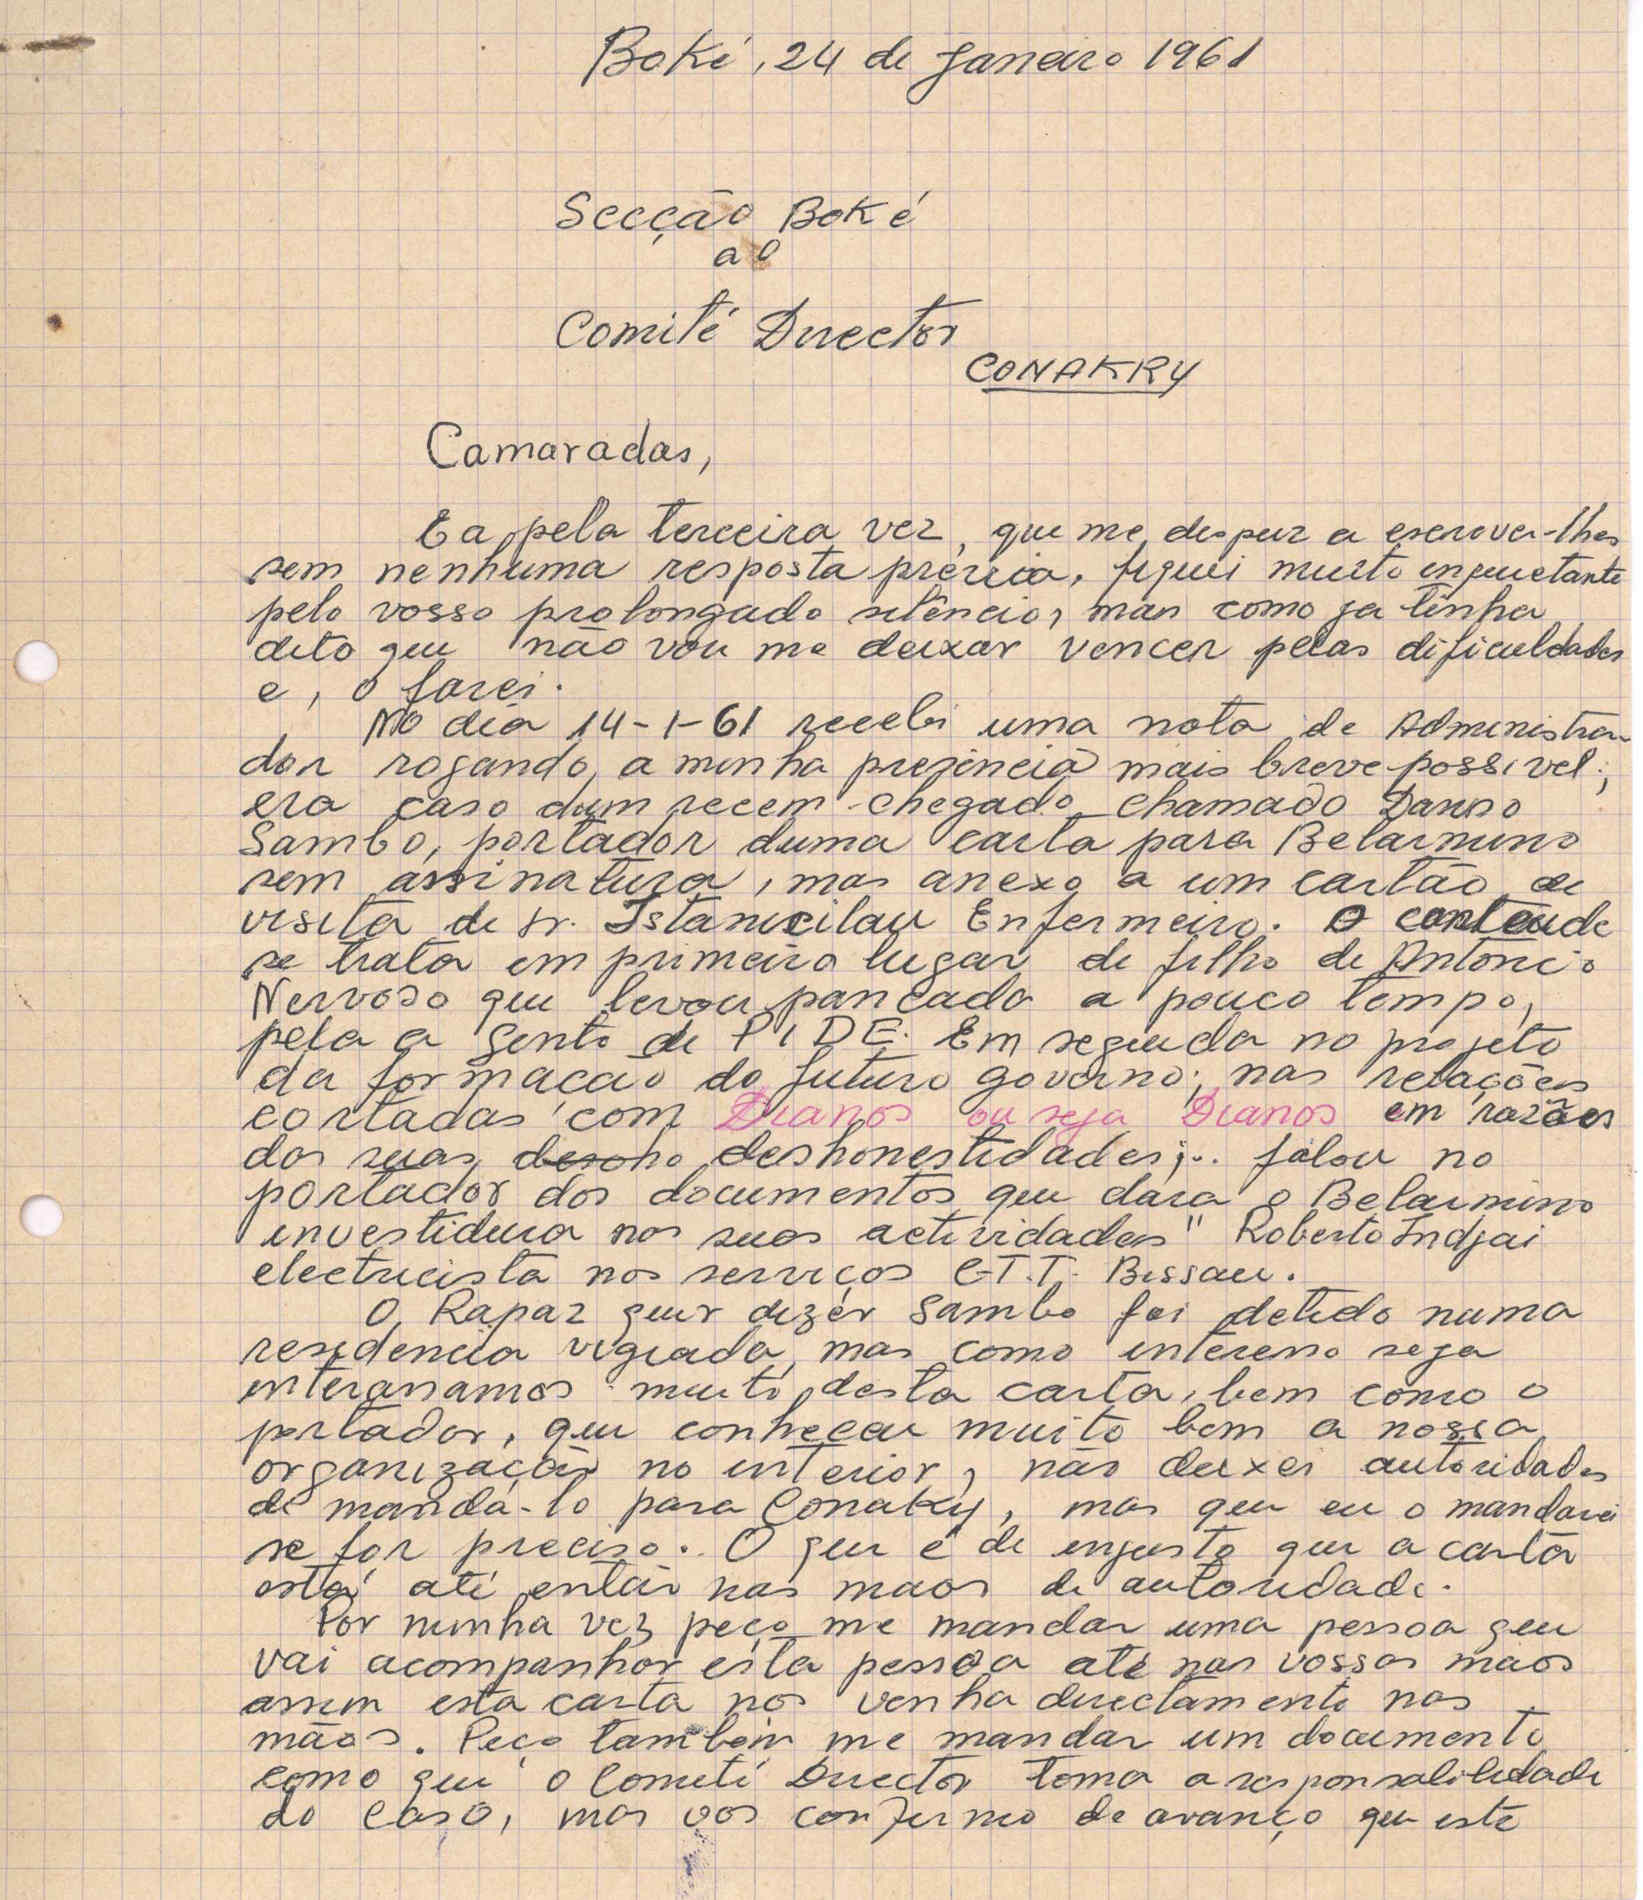 Boké, 24 de Janeiro 1961
Secção Boké
ao
Comité Director
CONAKRY
Camaradas,
É a pela terceira vez, que me dispuz a escrever-lhes
sem nenhuma resposta prévia, fiquei muito enquietante
pelo vosso prolongado silêncio, mas como ja tinha
dito que não vou me deixar vencer pelas dificuldades
e, o farei.
No dia 14-1-61 recebi uma nota de Administra-
dor rogando a minha presência mais breve possivel;
era caso dum recem-chegado chamado Dauso
Sambo, portador duma carta para Belarmino
sem assinatura, mas anexo a um cartão de
visita de Sr. Istanicilau Enfermeiro. O conteude
se trata em primeiro lugar de filho de Antonio
Nervoso que levou pancada a pouco tempo,
pela a gente de PIDE. Em seguida no projeto
da formacao do futuro governo; nas relações
cortadas com Dianos ou seja Dianos em razões
das suas desoho deshonestidades;.. falou no
portador dos documentos que dara o Belarmino
investidura nas suas actividades" Roberto Indjai
electricista nos serviços C.T.T. Bissau.
O Rapaz quer dizér Sambo foi detido numa
residencia vigiada, mas como interesso seja
interanamos muito desta carta, bem como o
portador, que conheceu muito bem a nossa
organização no interior, não deixei autoridades
de mandá-lo para Conaky, mas que eu o mandarei
se for preciso. O que é de injusto que a carta
está até então nas maos de autoridade.
Por minha vez peço me mandar uma pessoa que
vai acompanhar esta pessoa até nas vossas maos
assim esta carta nos venha directamente nas
mãos. Peço tambem me mandar um documento
como que o Cometé Director toma a responsalilidade
do caso, mas vos confirmo de avanço que este